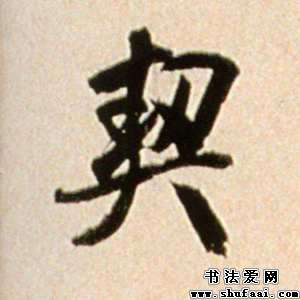 契
书法爱网
www.shufaai.com